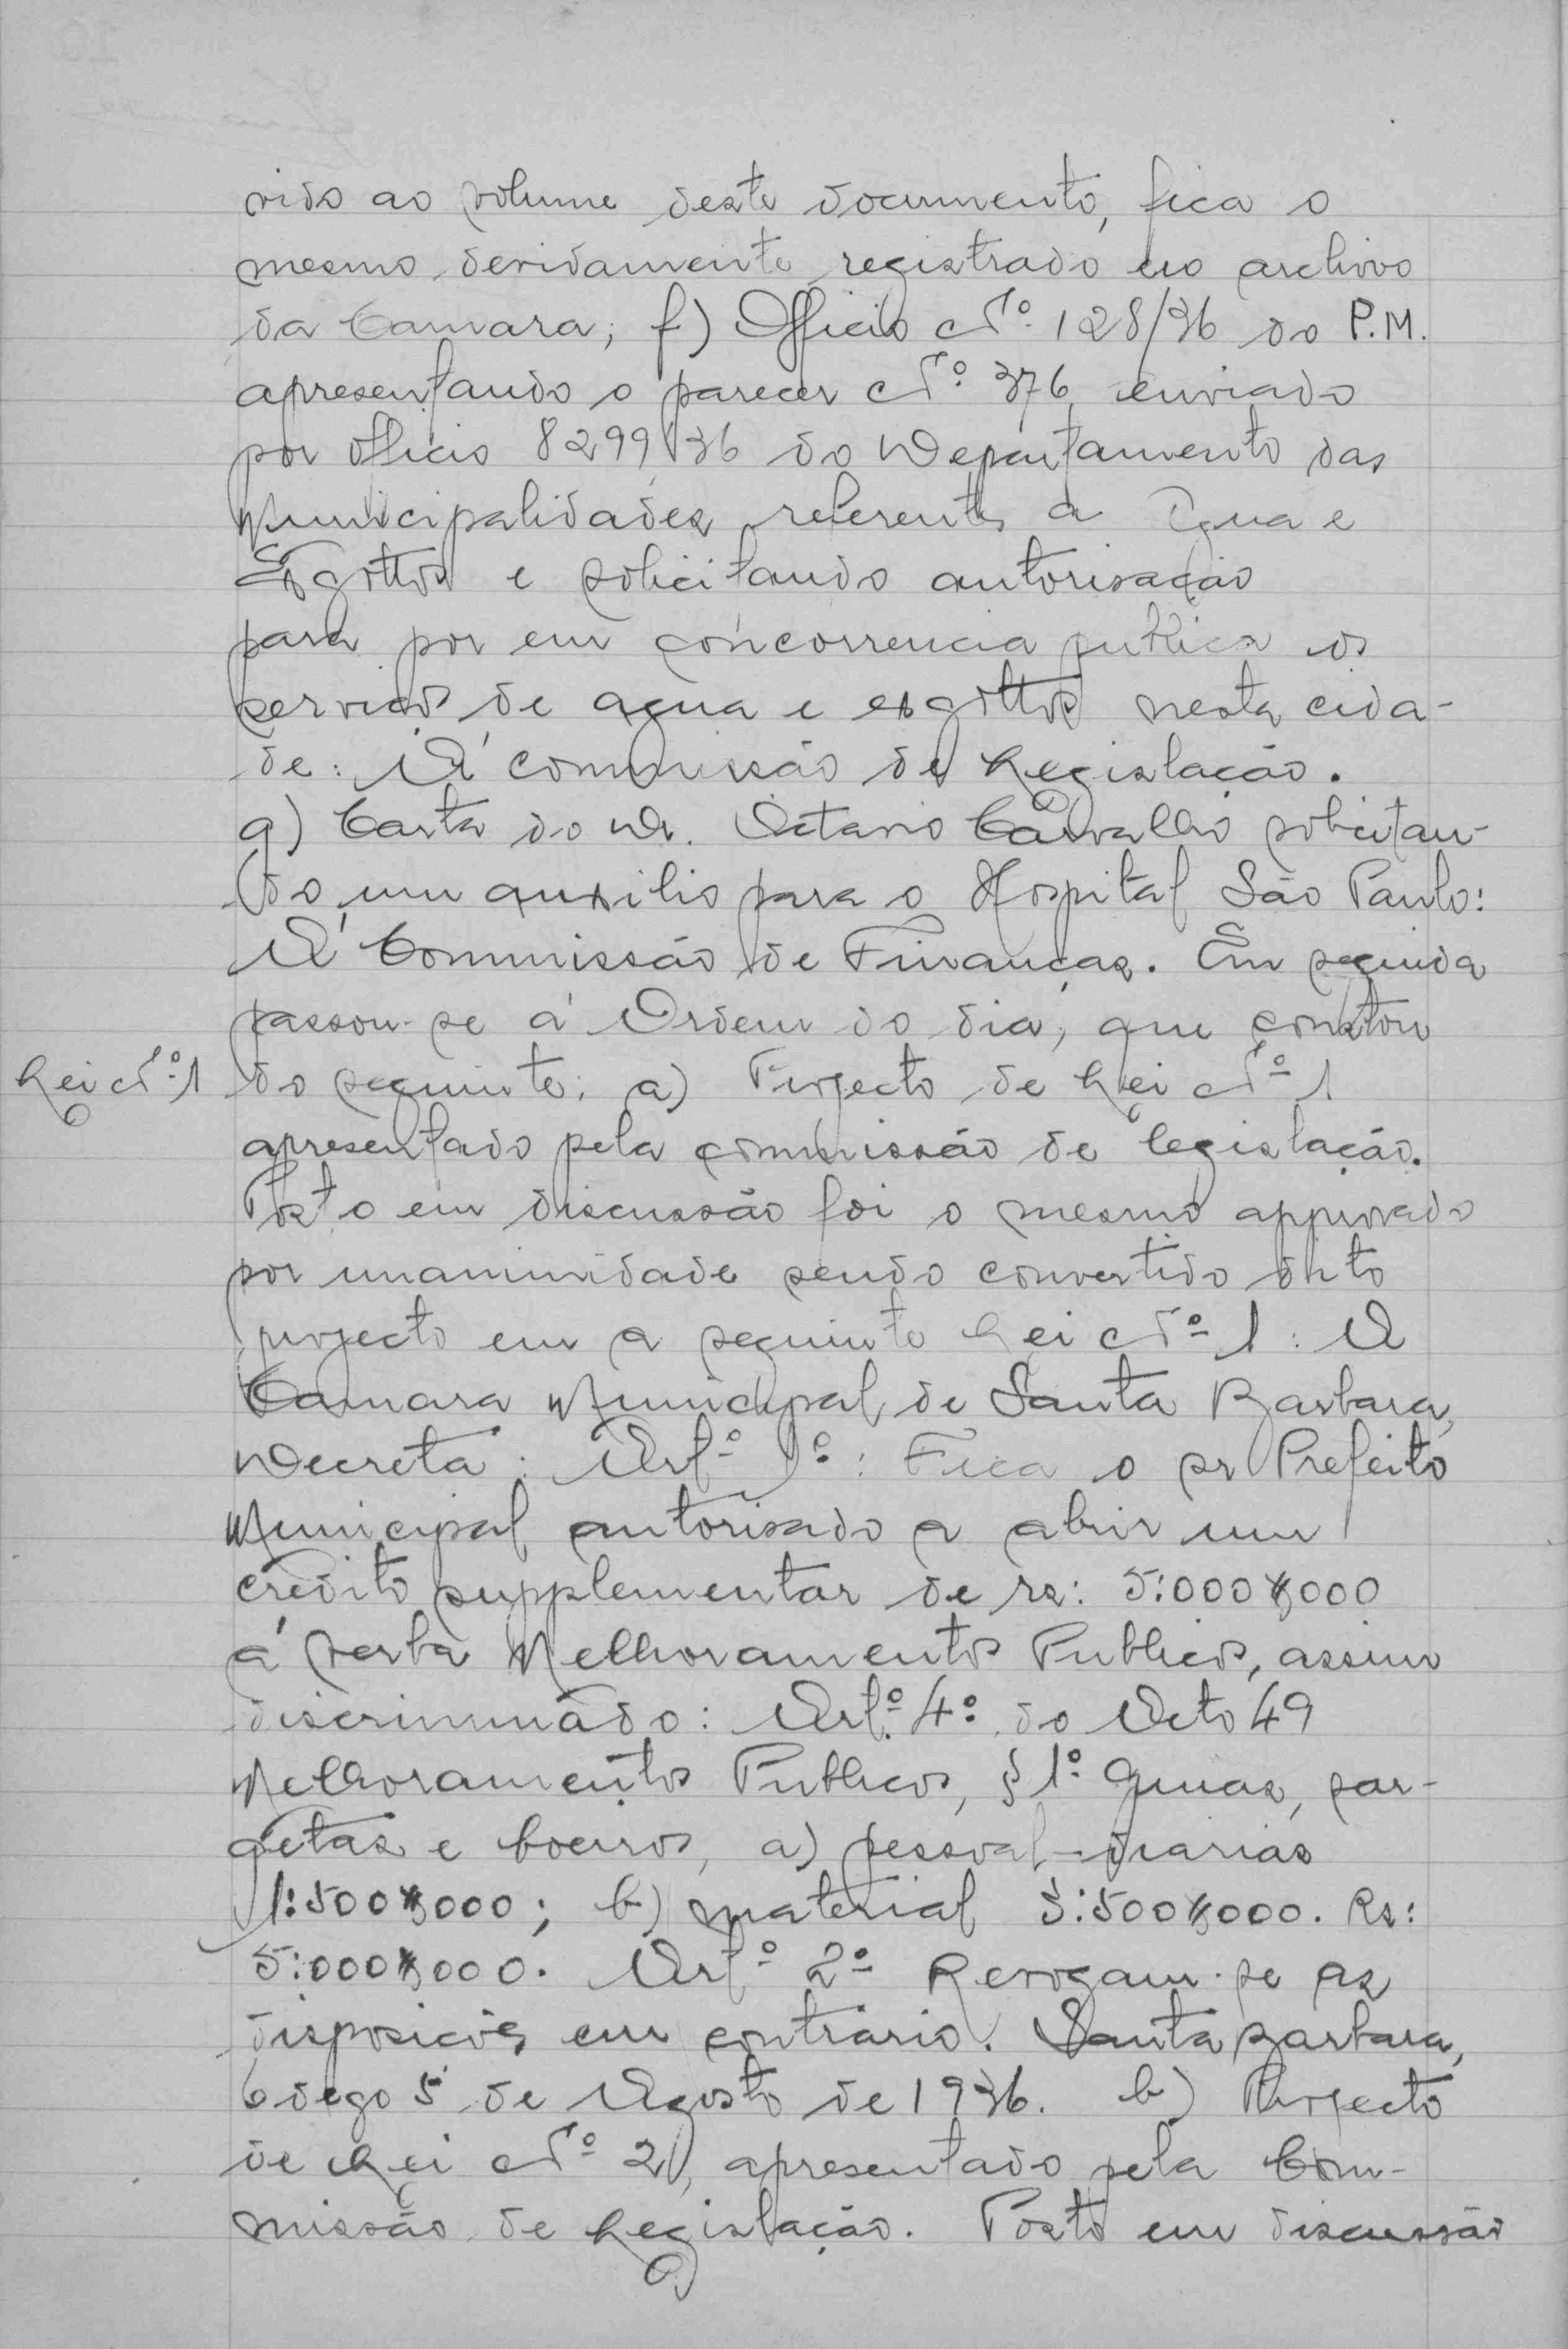 vido ao volume deste documento, fica o
mesmo devidamente registrado no archivo
da Camara; f) Officio Nº 128/36 do P.M.
apresentando o parecer Nº 376 enviado
por officio 8299/36 do Departamento das
Municipalidades, referente a Agua e
Esgottos e solicitando autorisação
para por em concorrencia publica os
serviços de agua e esgottos nesta cida-
de: Á commissão de Legislação.
g) Carta do Dr. Octavio Carvalho solicitan-
do um auxilio para o Hospital São Paulo:
Á Commissão de Finanças. Em seguida
passou-se á Ordem do dia, que constou
Lei Nº 1
do seguinte: a) Projecto de Lei Nº 1
apresentado pela commissão de legislação.
Posto em discussão foi o mesmo approvado
por unanimidade sendo convertido dito
projecto em a seguinte Lei Nº 1: A
Camara Municipal de Santa Barbara,
Decreta: Artº 1º: Fica o sr Prefeito
Municipal autorisado a abrir um
credito supplementar de rs: 5:000$000
á verba Melhoramentos Publicos, assim
discriminado: Artº 4º do Acto 49
Melhoramentos Publicos, § 1º Guias, sar-
getas e boeiros, a) pessoal - diarias
1:500$000; b) material 3:500$000. Rs:
5:000$000. Artº 2º Revogam-se as
disposições em contrario. Santa Barbara,
5 de Agosto de 1936. b) Projecto
de Lei Nº 2, apresentado pela Com-
missão de Legislação. Posto em discussão